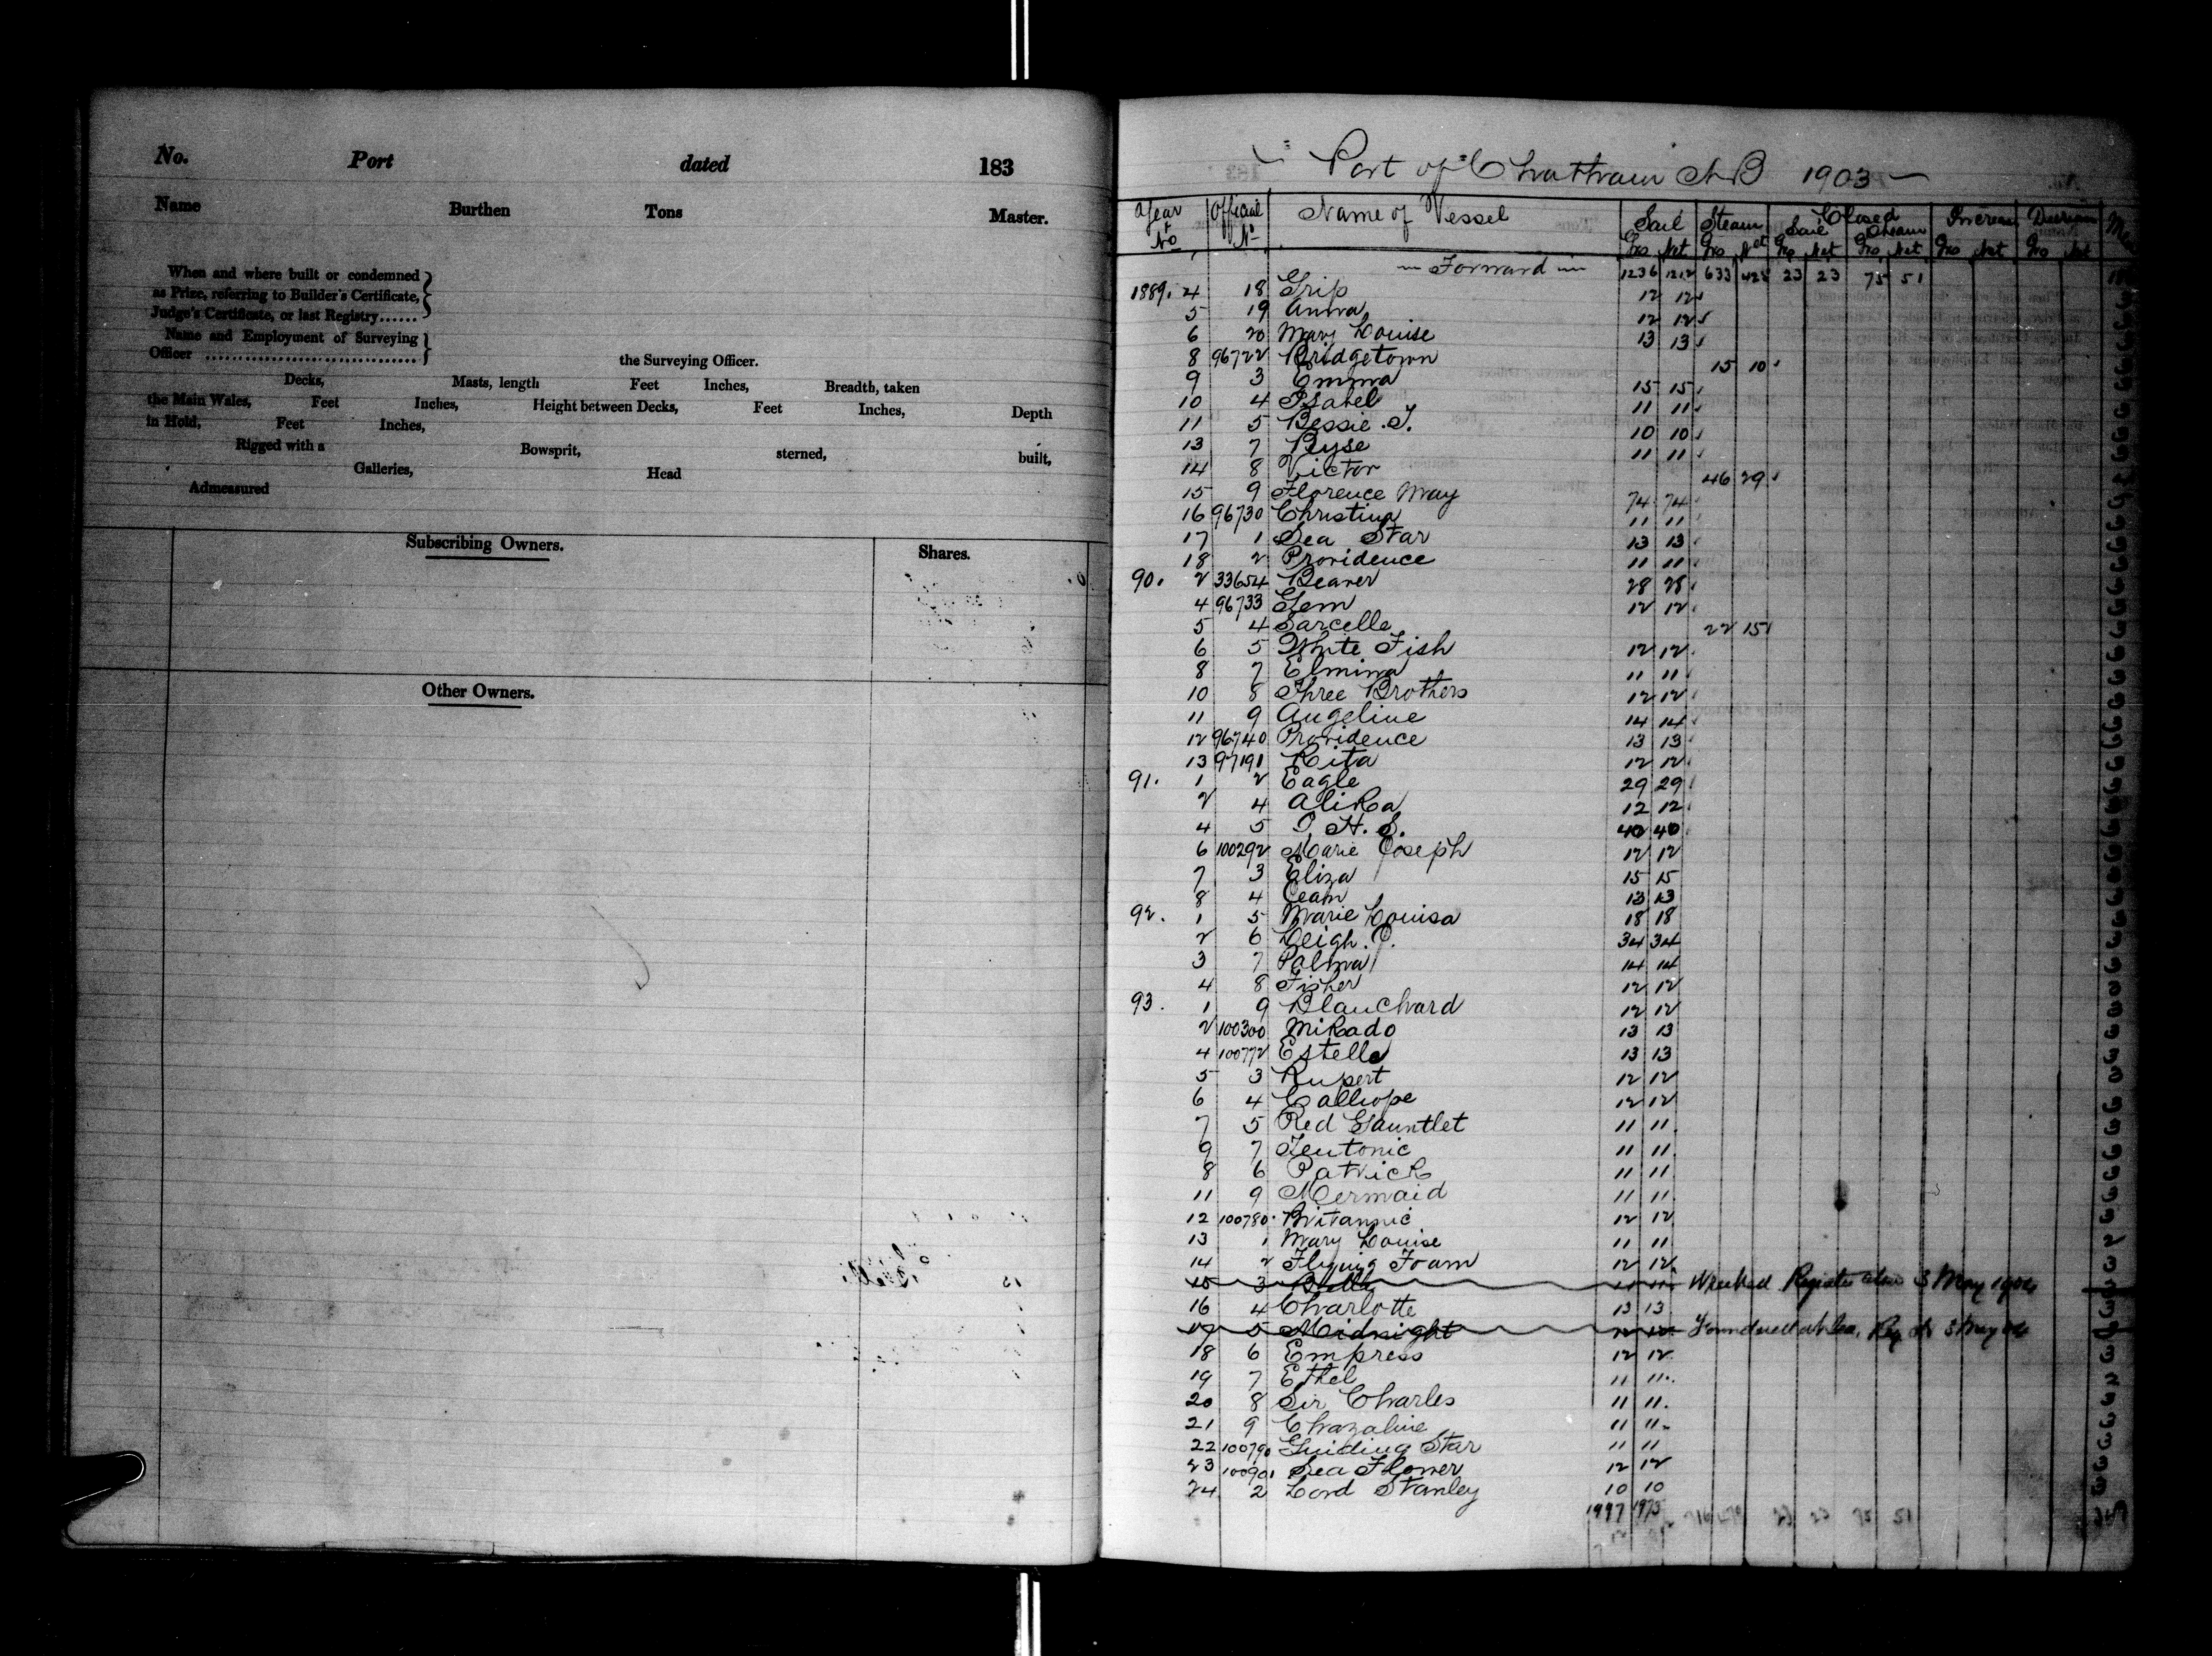 No. Port dated 183
Name Burthen Tons Master.
When and where built or condemned
as Prize, referring to Builder's Certificate,
Judge's Certificate, or last Registry......
Name and Employment of Surveying
Officer ................................ the Surveying Officer.
Decks, Masts, length Feet Inches, Breadth, taken
the Main Wales, Feet Inches, Height between Decks, Feet Inches, Depth
in Hold, Feet Inches,
Rigged with a Bowsprit, sterned, built,
Galleries, Head
Admeasured
Subscribing Owners. Shares.
Other Owners.
Port of Chatham NB 1903
Year & No Official No Name of Vessel Sail Steam Closed Increase Decrease
Sail Steam
Gro Net Gro Net Gro Net Gro Net Gro Net Gro Net
Forward 1236 1212 633 425 23 23 75 51
1889. 4 18 Grip 12 12
5 19 Anna 12 12
6 20 Mary Louise 13 13
8 96722 Bridgetown 15 10
9 3 Emma 15 15
10 4 Isabel 11 11
11 5 Bessie. T. 10 10
13 7 Byse 11 11
14 8 Victor 46 29
15 9 Florence May 74 74
16 96730 Christina 11 11
17 1 Sea Star 13 13
18 2 Providence 11 11
90. 2 33654 Beaver 28 28
4 96733 Gem 12 12
5 4 Sarcelle 22 15
6 5 White Fish 12 12
8 7 Elmina 11 11
10 8 Three Brothers 12 12
11 9 Angeline 14 14
12 96740 Providence 13 13
13 97191 Rita 12 12
91. 1 2 Eagle 29 29
2 4 Alika 12 12
4 5 I. H. S. 40 40
6 100292 Marie Joseph 12 12
7 3 Eliza 15 15
8 4 13 13
92. 1 5 Marie Louisa 18 18
2 6 Leigh. J. 34 34
3 7 Palma 14 14
4 8 Fisher 12 12
93. 1 9 Blanchard 12 12
2 100300 Mikado 13 13
4 100772 Estella 13 13
5 3 Rupert 12 12
6 4 Calliope 12 12
7 5 Red Gauntlet 11 11
9 7 Teutonic 11 11
8 6 Patrick 11 11
11 9 Mermaid 11 11
12 100780 Britannic 12 12
13 1 Mary Louise 11 11
14 2 Flying Foam 12 12
15 3 Belle 11 11 Wrecked Register 3 May 1904
16 4 Charlotte 13 13
17 5 Midnight 12 12 Foundered at Sea. Reg 3 May 04
18 6 Empress 12 12
19 7 Ethel 11 11
20 8 Sir Charles 11 11
21 9 Chazaline 11 11
22 100790 Guiding Star 11 11
23 100901 Sea Flower 12 12
24 2 Lord Stanley 10 10
1997 1973